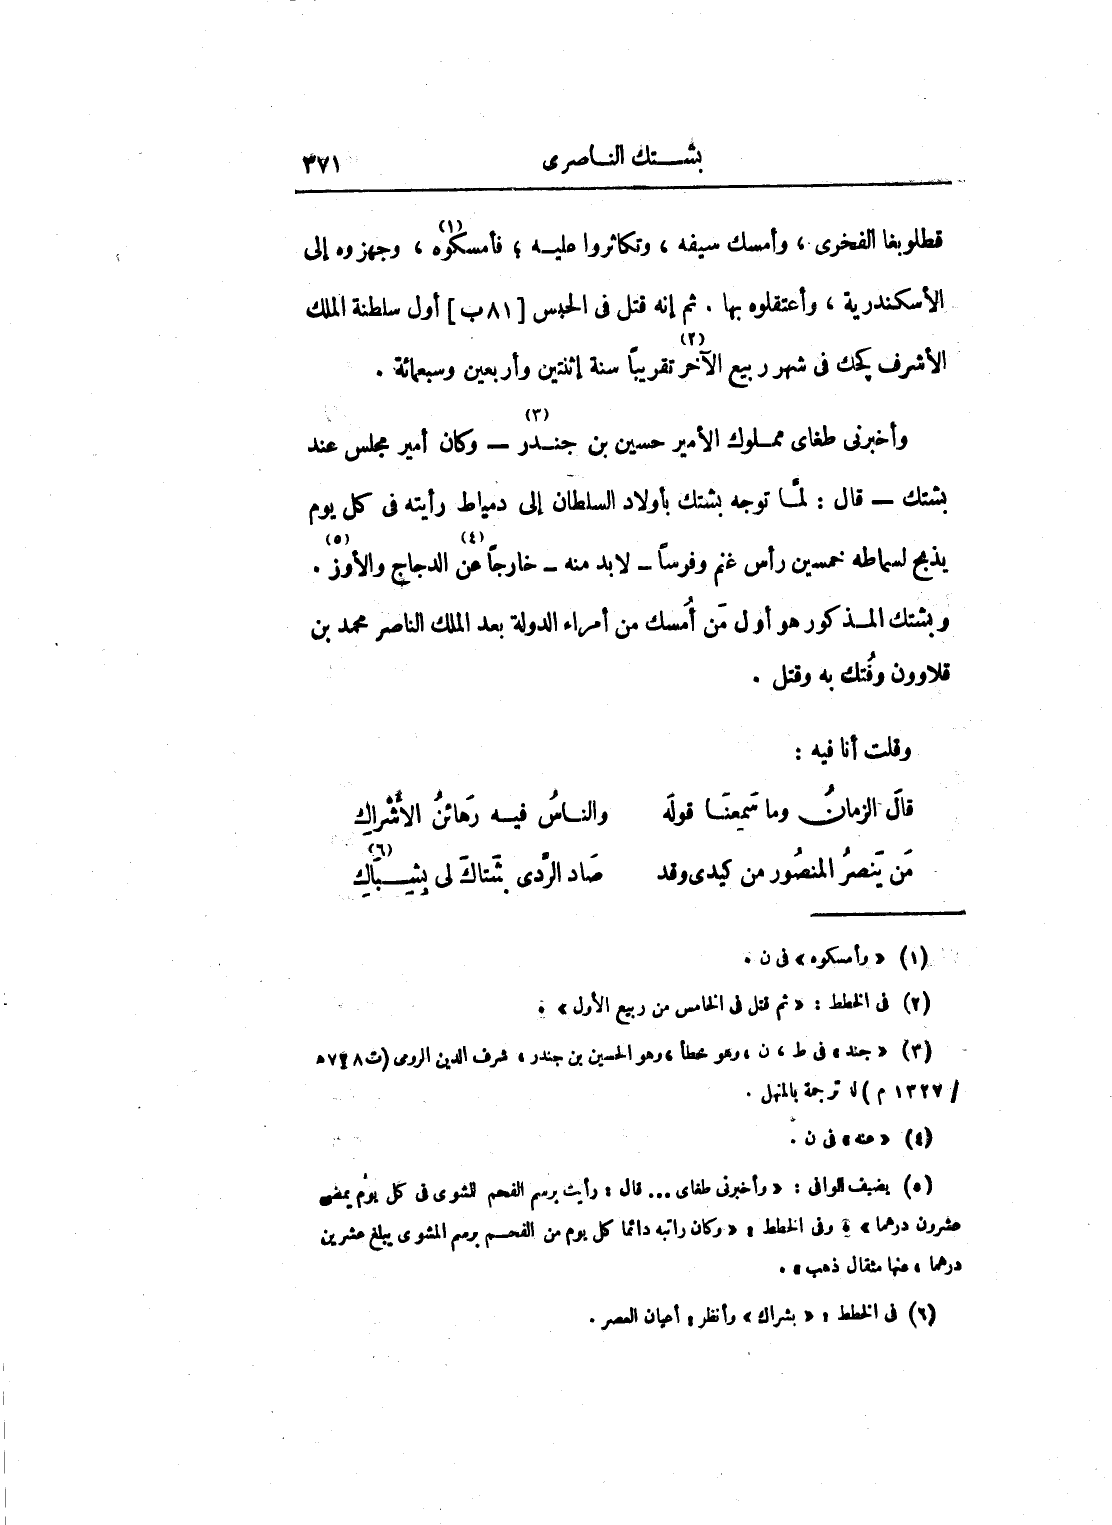 بشتك الناصرى ٣٧١
قطلوبغا الفخرى ، وأمسك سيفه ، وتكاثروا عليه ؛ فأمسكوه (١) ، وجهزوه إلى
الأسكندرية ، وأعتقلوه بها . ثم إنه قتل فى الحبس [ ٨١ب ] أول سلطنة الملك
الأشرف كجك فى شهر ربيع الآخر (٢) تقريبًا سنة إثنتين وأربعين وسبعمائة .
وأخبرنى طغاى مملوك الأمير حسين بن جندر (٣) — وكان أمير مجلس عند
بشتك — قال : لمَّا توجه بشتك بأولاد السلطان إلى دمياط رأيته فى كل يوم
يذبح لسماطه خمسين رأس غنم وفرسًا — لابد منه — خارجًا عن (٤) الدجاج والأوز (٥) .
وبشتك المذكور هو أول مَن أُمسك من أمراء الدولة بعد الملك الناصر محمد بن
قلاوون وفُتك به وقتل .
وقلت أنا فيه :
قالَ الزمانُ وما سَمِعنَا قولَه والناسُ فيه رَهائنُ الأَشْراكِ
مَن يَنصرُ المنصُور من كيدى وقد صَاد الرَّدى بشَّتاكَ لى بِشِبَّاكِ (٦)
(١) « وأمسكوه » فى ن .
(٢) فى الخطط : « ثم قتل فى الخامس من ربيع الأول » .
(٣) « جند » فى ط ، ن ، وهو خطأ ، وهو الحسين بن جندر ، شرف الدين الرومى (ت ٧٢٨ ه
/ ١٣٢٧ م ) له ترجمة بالمنهل .
(٤) « عنه » فى ن .
(٥) يضيف الوافى : « وأخبرنى طغاى ... قال : رأيت برسم الفحم للشوى فى كل يوم يمضى
عشرون درهما » ؛ وفى الخطط : « وكان راتبه دائما كل يوم من الفحم برسم المشوى يبلغ عشرين
درهما ، عنها مثقال ذهب » .
(٦) فى الخطط : « بشراك » وأنظر : أعيان العصر .